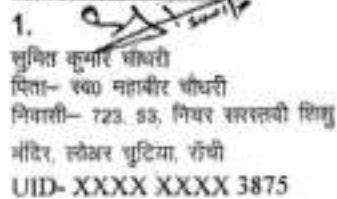 1.
सुमित कुमार चौधरी
पिता– स्व0 महाबीर चौधरी
निवासी– 723, 53, नियर सरस्वती शिशु
मंदिर, लोअर चुटिया, राँची
UID- XXXX XXXX 3875